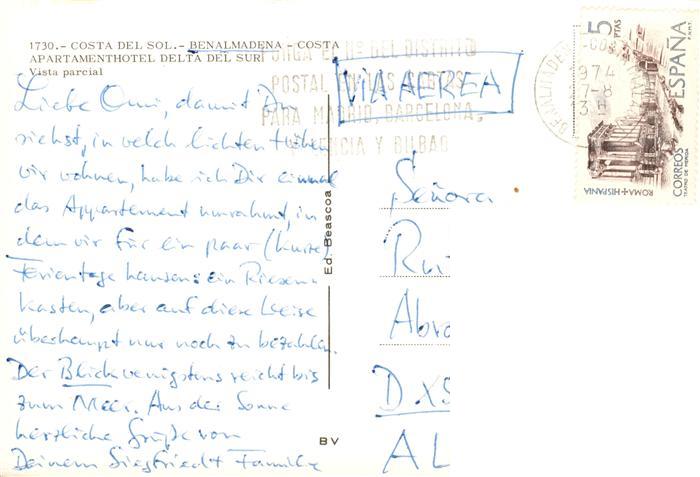 1730.- COSTA DEL SOL.- BENALMADENA - COSTA
APARTAMENTHOTEL DELTA DEL SUR
Vista parcial
Liebe Omi, damit Du
siehst, in welch lichten Höhen
wir wohnen, habe ich Dir einmal
das Appartement umrahmt, in
dem wir für ein paar (kurze)
Ferientage hausen: ein Riesen-
kasten, aber auf diese Weise
überhaupt nur noch zu bezahlen.
Der Blick wenigstens reicht bis
zum Meer. Aus der Sonne
herzliche Grüße von
Deinem Siegfried + Familie
Ed. Beascoa
BV
PONGA EL Nº DEL DISTRITO
POSTAL EN LAS CARTAS
PARA MADRID, BARCELONA,
VALENCIA Y BILBAO
VIA AEREA
Señora
Rui
Abra
AL
BENALMADENA
1974
5 PTAS
ESPAÑA
F.N.M.T.
CORREOS
ROMA + HISPANIA